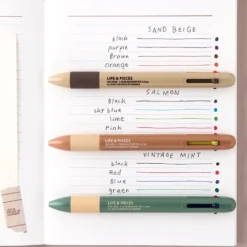 SAND BEIGE
black
purple
Brown
orange
LIFE & PIECES
SALMON
Black
sky blue
lime
Pink
LIFE & PIECES
VINTAGE MINT
black
Red
Blue
green
LIFE & PIECES